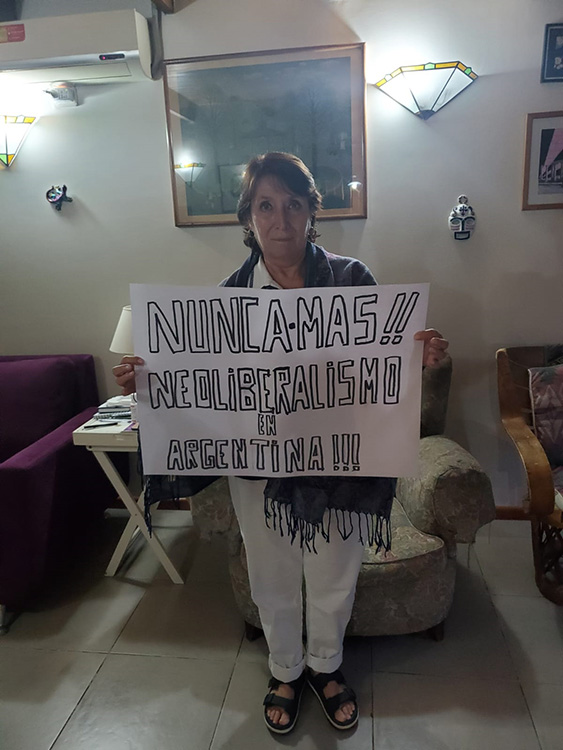 NUNCA·MAS!!
NEOLIBERALISMO
EN
ARGENTINA!!!